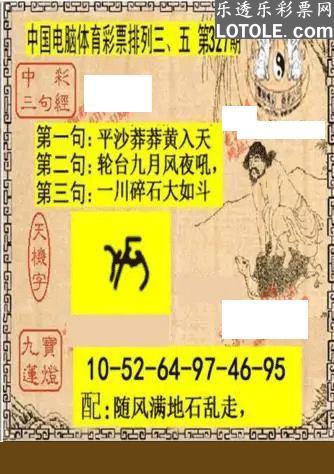 乐透乐彩票网
LOTOLE.COM
中国电脑体育彩票排列三、五 第327期
中彩
三句經
第一句:平沙莽莽黄入天
第二句:轮台九月风夜吼,
第三句:一川碎石大如斗
天機字
九寶
運燈
10-52-64-97-46-95
配:随风满地石乱走,